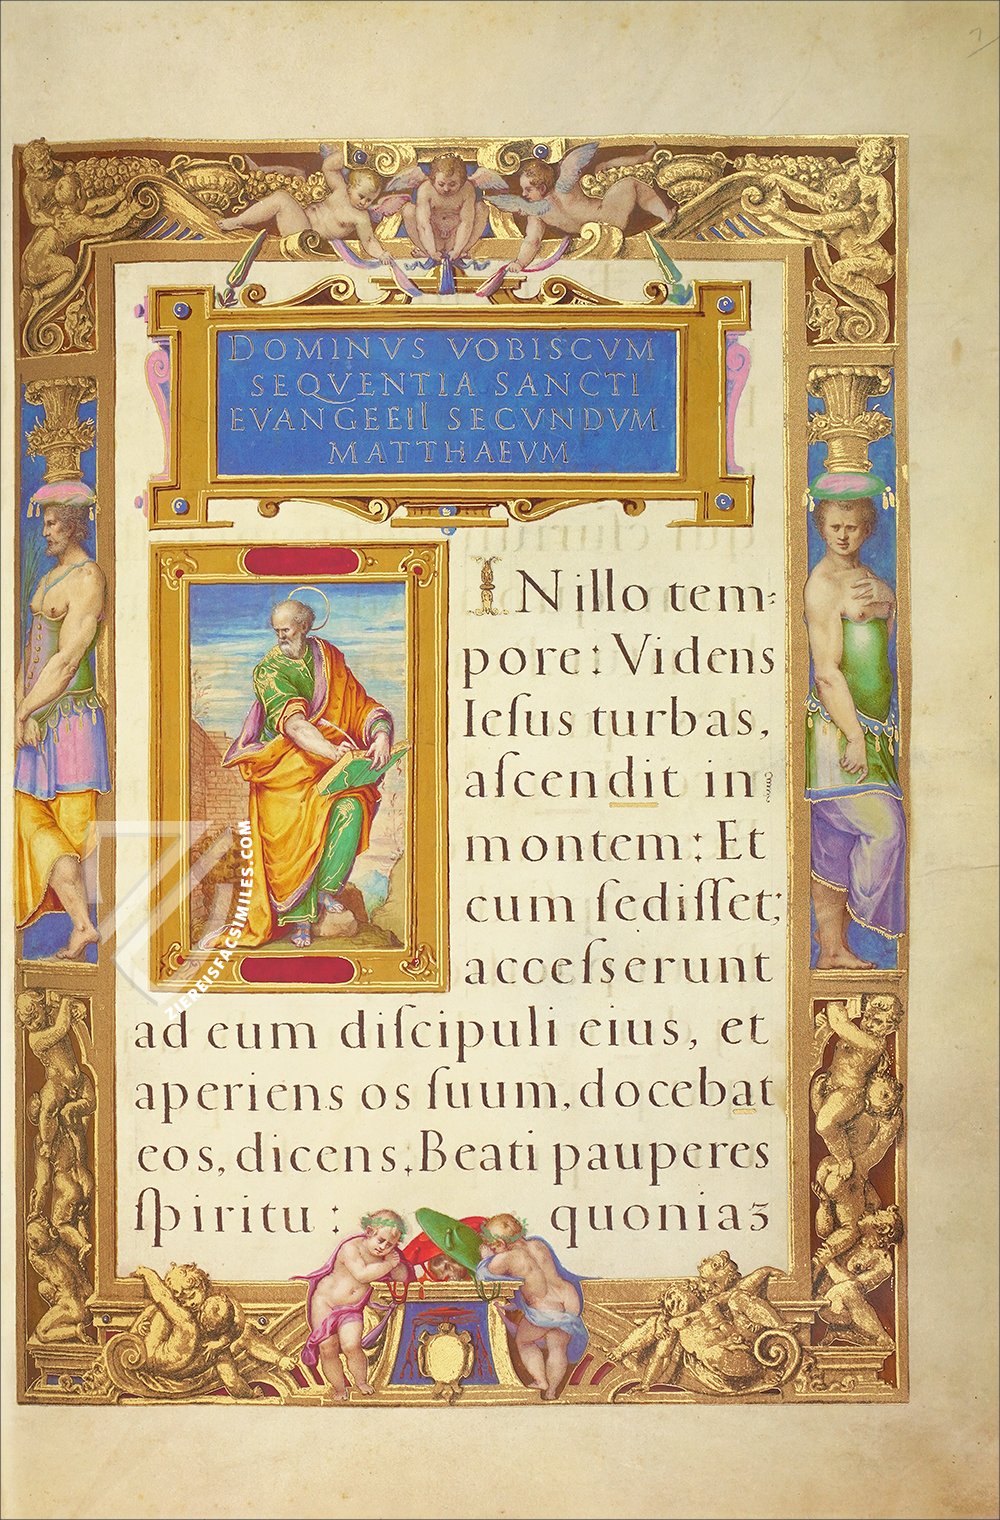 DOMINVS VOBISCVM
SEQVENTIA SANCTI
EVANGEEII SECVNDVM
MATTHAEVM
IN illo tem:
pore: Videns
Ieſus turbas,
aſcendit in
montem: Et
cum ſediſſet;
acceſserunt
ad eum diſcipuli eius, et
aperiens os ſuum, docebat
eos, dicens. Beati pauperes
ſpiritu: quoniaʒ
ZIEREISFACSIMILES.COM